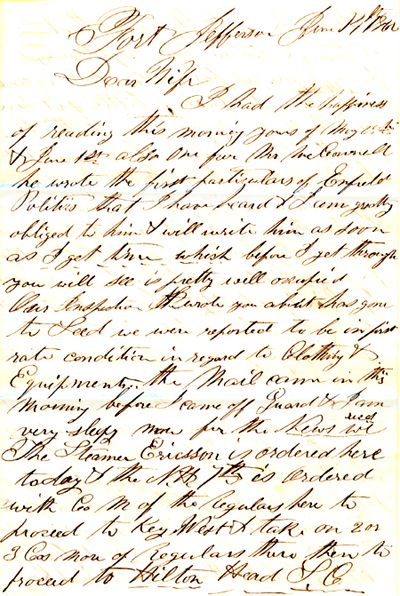 Fort Jefferson June 14th 1862
Dear Wife
I had the happiness
of reading this morning yours of May 25th
& June 1st also One from Mr McConnell
he wrote the first particulars of Enfield
Politics that I have heard & I am greatly
obliged to him & will write him as soon
as I get time which before I get through
you will see is pretty well occupied
Our Inspection I wrote you about has gone
to Seed we were reported to be in first
rate condition in regard to Clothing &
Equipments. the Mail came in this
Morning before I came off Guard & I am
very sleepy now for the News we
recd
The Steamer Ericsson is ordered here
today & the NH 7th is Ordered
with Co M of the Regulars here to
proceed to Key West & take on 2 or
3 Cos more of Regulars there then to
proceed to Hilton Head S.C.